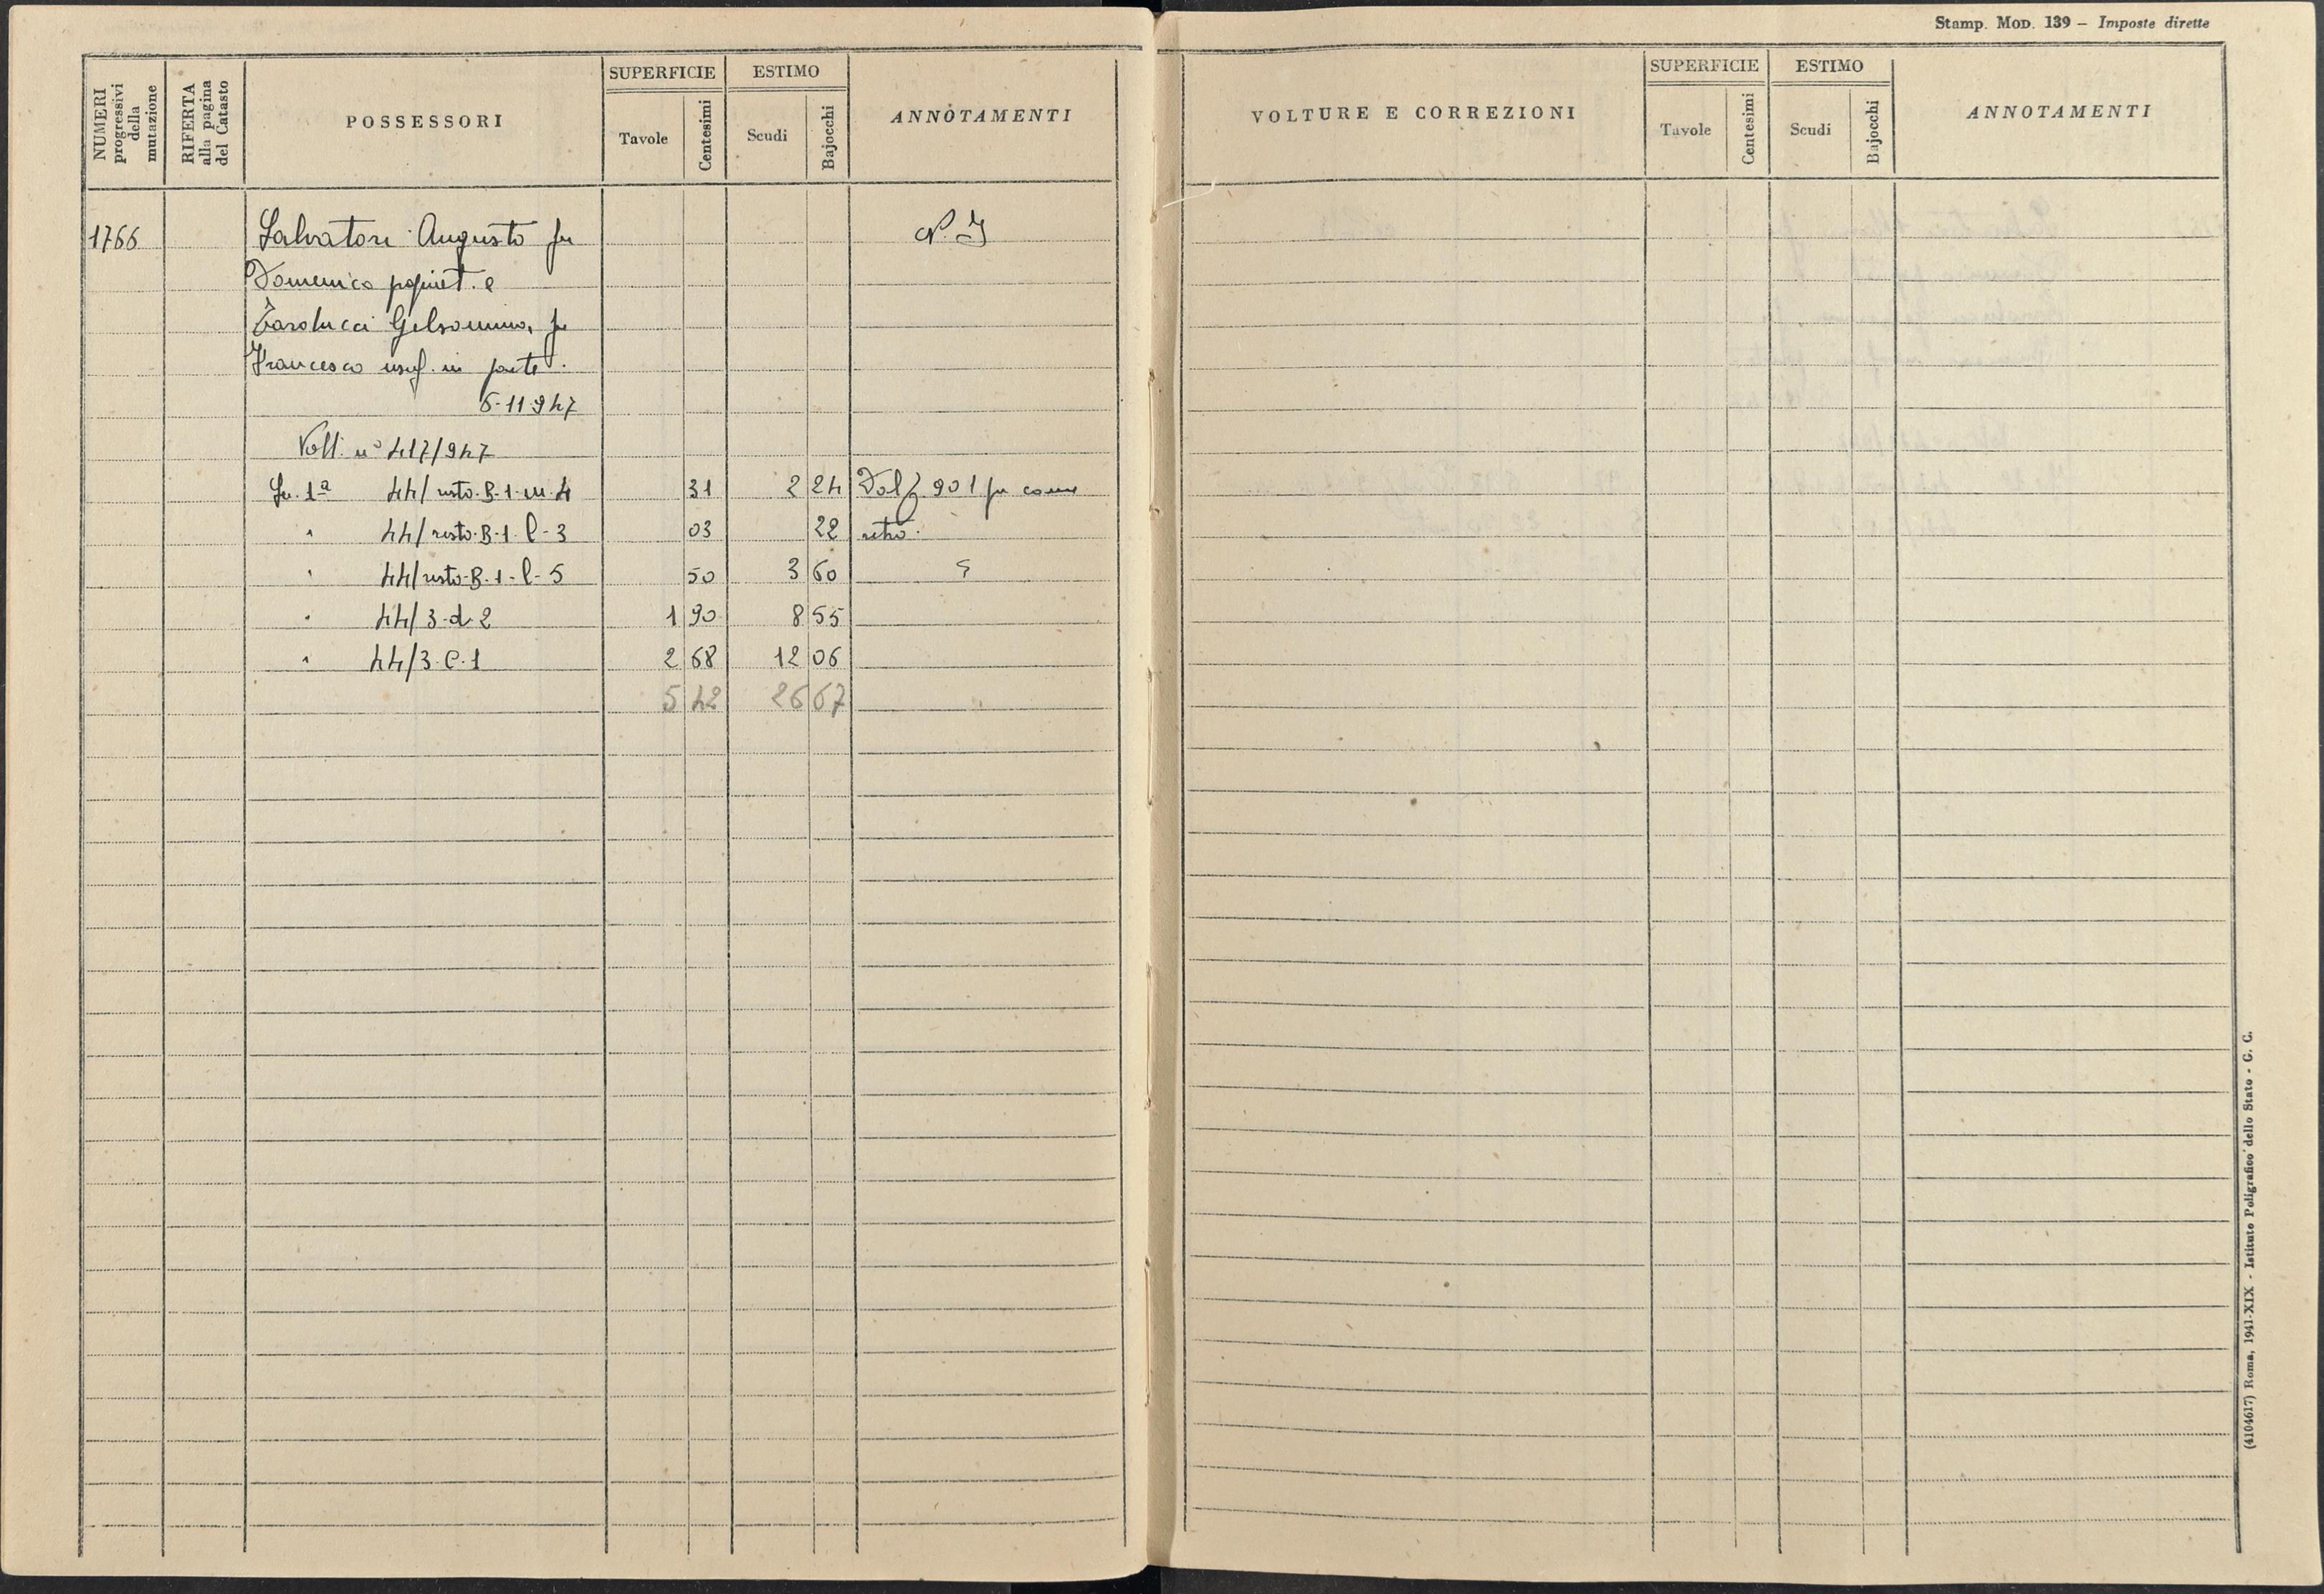 Stamp. Mod. 139 – Imposte dirette
NUMERI progressivi della mutazione
RIFERTA alla pagina del Catasto
POSSESSORI
SUPERFICIE
Tavole
Centesimi
ESTIMO
Scudi
Bajocchi
ANNOTAMENTI
VOLTURE E CORREZIONI
SUPERFICIE
Tavole
Centesimi
ESTIMO
Scudi
Bajocchi
ANNOTAMENTI
1766 Salvatori Augusto fu
Domenico propriet. e
Gelsomina fu
Francesco usuf. in parte.
6-11-947
Volt. n° 417/947
44/ resto-B-1-m-4 31 2 24 901 come
" 44/ resto-B-1-l-3 03 22 retro.
" 44/ resto-B-1-l-5 50 3 60
" 44/3-d-2 1 90 8 55
" 44/3-e-1 2 68 12 06
5 42 26 67
(4104617) Roma, 1941-XIX - Istituto Poligrafico dello Stato - G. C.